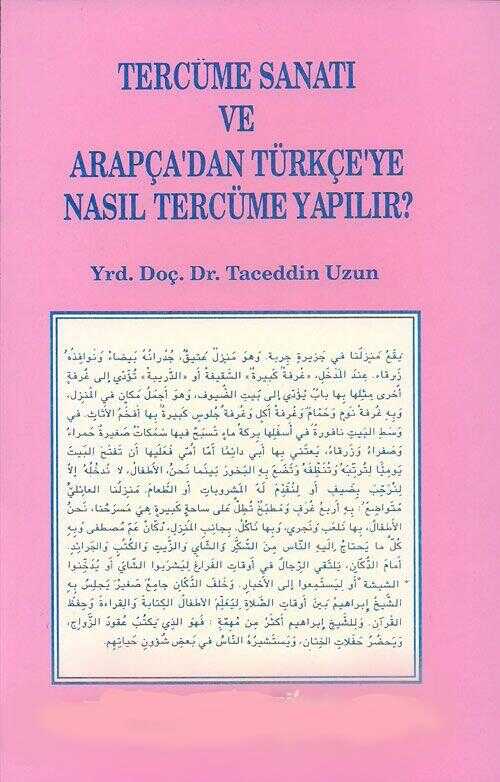 TERCÜME SANATI
VE
ARAPÇA'DAN TÜRKÇE'YE
NASIL TERCÜME YAPILIR?
Yrd. Doç. Dr. Taceddin Uzun
يَقَعُ مَنزِلُنا في جَزيرةِ جربة. وَهوَ مَنزِلٌ عَتيقٌ، جُدرانُهُ بَيضاءُ وَنَوافِذُهُ
زَرقاء. عِندَ المَدخَلِ، «غُرفةٌ كَبيرةٌ» السَّقيفة أو «الدَّريبة» تُؤَدّي إلى غُرفةٍ
أخرى مِثلِها بها بابٌ يُؤَدّي إلى بَيتِ الضُّيوف، وَهوَ أجمَلُ مَكانٍ في المَنزِل،
وَبهِ غُرفة نَومٍ وَحَمّامٌ وَغُرفة أكلٍ وَغُرفةُ جُلوسٍ كَبيرةٌ بها أفخَمُ الأثاث. في
وَسَطِ البَيتِ نافورةٌ في أسفَلِها بِركةُ ماءٍ تَسبَحُ فيها سَمَكاتٌ صَغيرةٌ حَمراءُ
وَصَفراءُ وَزَرقاءُ، يَعتَني بِها أبي دائِمًا أمّا أمّي فَعَلَيها أن تَفتَحَ البَيتَ
يَوميًّا لِتُرَتِّبَهُ وَتُنَظِّفَهُ وَتَضَعَ بهِ البَخورَ بَينَما نَحنُ، الأطفالَ، لا نَدخُلُهُ إلاّ
لِنُرَحِّبَ بِضَيفٍ أو لِنُقَدِّمَ لَهُ المَشروباتِ أو الطَّعامَ. مَنزِلُنا العائِليُّ
مُتَواضِعٌ: بهِ أربَعُ غُرَفٍ وَمَطبَخٌ تُطِلُّ على ساحةٍ كَبيرةٍ هِيَ مَسرَحُنا، نَحنُ
الأطفالَ، بها نَلعَبُ وَنَجري، وَبها نَأكُلُ. بِجانِبِ المَنزِلِ، دُكّانُ عَمّ مُصطَفى وَبهِ
كُلُّ ما يَحتاجُ إلَيهِ النّاسُ مِنَ السُّكَّرِ وَالشّايِ وَالزَّيتِ وَالكُتُبِ وَالجَرائِدِ.
أمامَ الدُّكّانِ، يَلتَقي الرِّجالُ في أوقاتِ الفَراغِ لِيَشرَبوا الشّايَ أو يُدَخِّنوا
الشيشة * أو لِيَستَمِعوا إلى الأخبارِ. وَخَلفَ الدُّكّانِ جامِعٌ صَغيرٌ يَجلِسُ بهِ
الشَّيخُ إبراهيم بَينَ أوقاتِ الصَّلاةِ لِيُعَلِّمَ الأطفالَ الكِتابةَ وَالقِراءةَ وَحِفظَ
القُرآن. وَلِلشَّيخِ إبراهيم أكثَرُ مِن مُهِمّة: فَهوَ الذي يَكتُبُ عُقودَ الزَّواجِ،
وَيَحضُرُ حَفَلاتِ الخِتانِ، وَيَستَشيرُهُ النّاسُ في بَعضِ شُؤونِ حَياتِهِم.